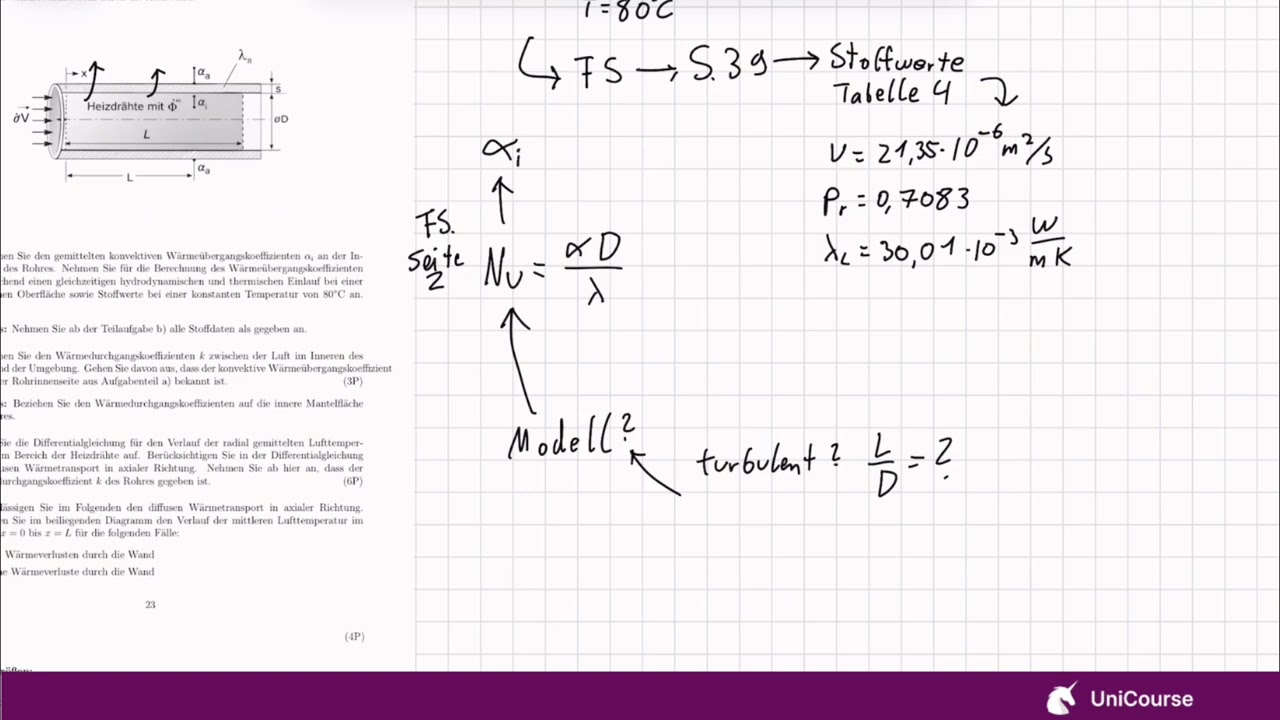 T=80°C
FS → S.39 → Stoffwerte
Tabelle 4
ν = 21,35·10⁻⁶ m²/s
Pr = 0,7083
λL = 30,01·10⁻³ W/mK
αi
FS.
Seite
2
Nu = αD/λ
Modell?
turbulent? L/D = ?
λR
x
αa
s
Heizdrähte mit Φ̇'''
αi
∂V̇
L
øD
αa
L
en Sie den gemittelten konvektiven Wärmeübergangskoeffizienten αi an der In-
des Rohres. Nehmen Sie für die Berechnung des Wärmeübergangskoeffizienten
hend einen gleichzeitigen hydrodynamischen und thermischen Einlauf bei einer
en Oberfläche sowie Stoffwerte bei einer konstanten Temperatur von 80°C an.
s: Nehmen Sie ab der Teilaufgabe b) alle Stoffdaten als gegeben an.
en Sie den Wärmedurchgangskoeffizienten k zwischen der Luft im Inneren des
d der Umgebung. Gehen Sie davon aus, dass der konvektive Wärmeübergangskoeffizient
er Rohrinnenseite aus Aufgabenteil a) bekannt ist. (3P)
s: Beziehen Sie den Wärmedurchgangskoeffizienten auf die innere Mantelfläche
res.
ie die Differentialgleichung für den Verlauf der radial gemittelten Lufttemper-
m Bereich der Heizdrähte auf. Berücksichtigen Sie in der Differentialgleichung
usen Wärmetransport in axialer Richtung. Nehmen Sie ab hier an, dass der
urchgangskoeffizient k des Rohres gegeben ist. (6P)
lässigen Sie im Folgenden den diffusen Wärmetransport in axialer Richtung.
en Sie im beiliegenden Diagramm den Verlauf der mittleren Lufttemperatur im
x = 0 bis x = L für die folgenden Fälle:
Wärmeverlusten durch die Wand
e Wärmeverluste durch die Wand
23
(4P)
UniCourse